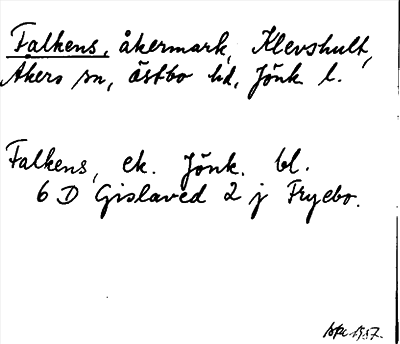 Falkens, åkermark, Klevshult,
Åkers sn, östbo hd, Jönk. l.
Falkens, ek. Jönk. bl.
6 D Gislaved 2 j Fryebo.
1957.